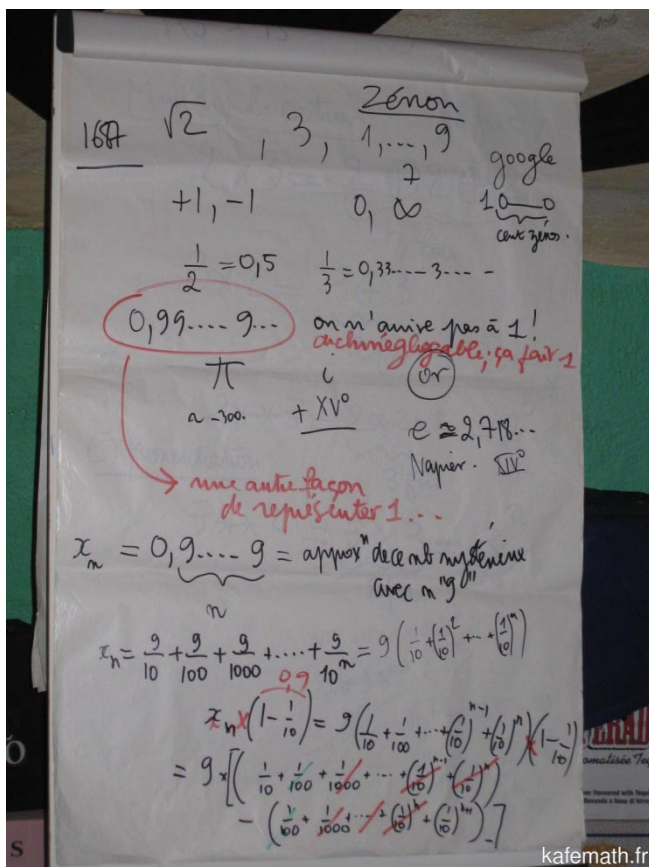 Zénon
1687 √2 , 3, 1,...,9
7
google
+1, -1 0, ∞ 10—0
cent zéros.
1/2 = 0,5 1/3 = 0,33....3.... -
0,99....9... on n'arrive pas à 1!
archinégligeable, ça fait 1
π i or
~ -300. + XV° e ≃ 2,718...
Napier. XIV°
une autre façon
de représenter 1...
x_n = 0,9....9 = approx° de ce nb mystérieux
n avec n "9"
x_n = 9/10 + 9/100 + 9/1000 + .... + 9/10^n = 9(1/10 + (1/10)^2 + ... + (1/10)^n)
0,9
x_n × (1 - 1/10) = 9(1/10 + 1/100 + ... + (1/10)^{n-1} + (1/10)^n) × (1 - 1/10)
= 9 × [(1/10 + 1/100 + 1/1000 + ... + (1/10)^{n-1} + (1/10)^n)
- (1/100 + 1/1000 + ... + (1/10)^n + (1/10)^{n+1})]
S
kafemath.fr